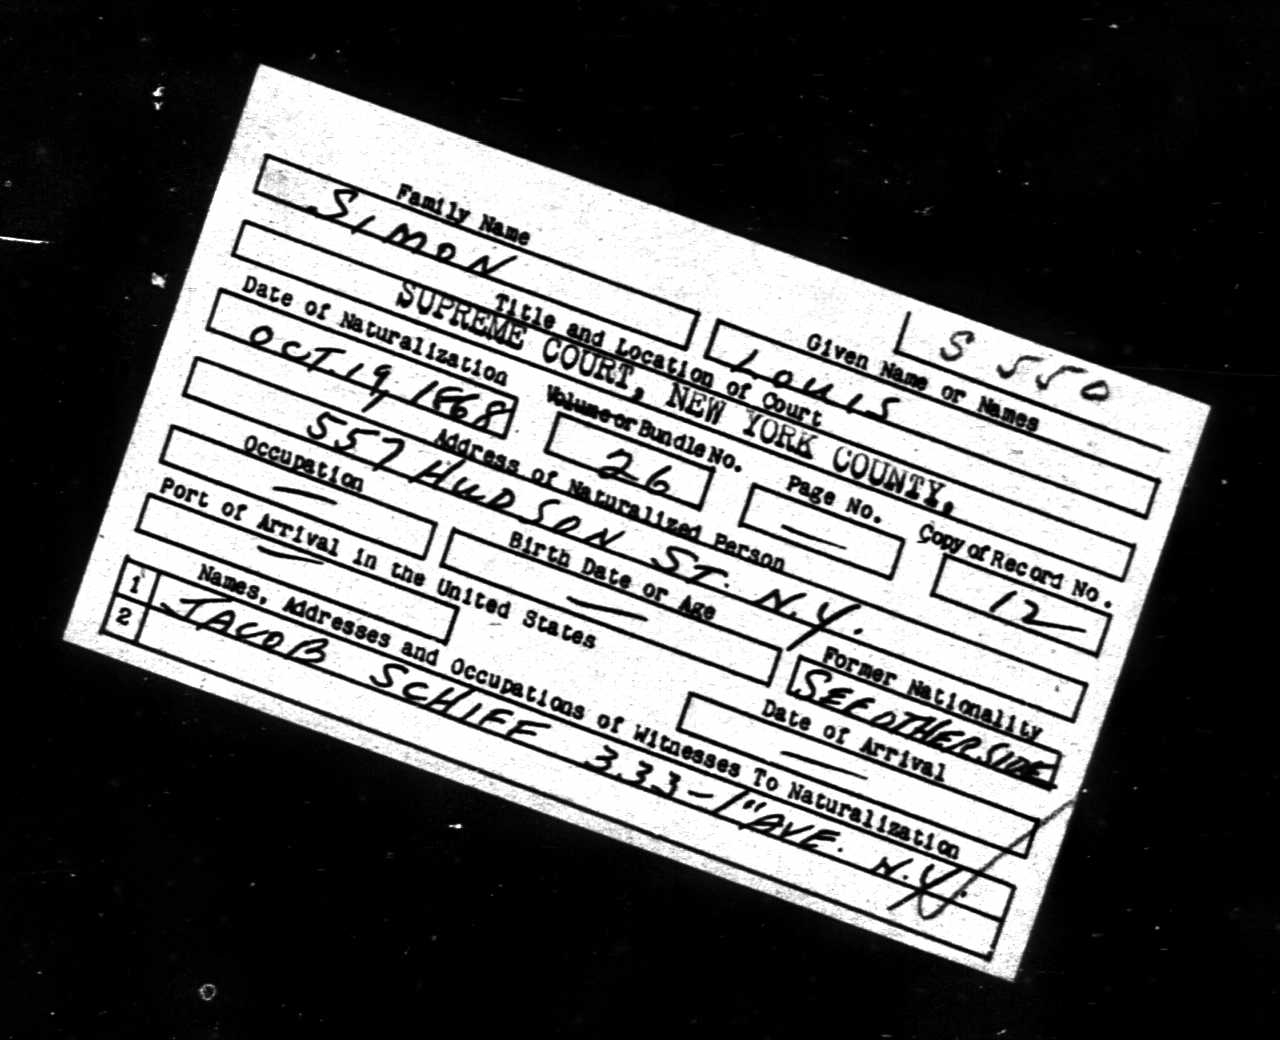 S 550
Family Name Given Name or Names
SIMON LOUIS
Title and Location of Court
SUPREME COURT, NEW YORK COUNTY.
Date of Naturalization Volume or Bundle No. Page No. Copy of Record No.
OCT. 19, 1868 26 — 12
Address of Naturalized Person
557 HUDSON ST. N.Y.
Occupation Birth Date or Age Former Nationality
— — SEE OTHER SIDE
Port of Arrival in the United States Date of Arrival
— —
Names, Addresses and Occupations of Witnesses To Naturalization
1 JACOB SCHIFF 333-1" AVE. N.Y.
2